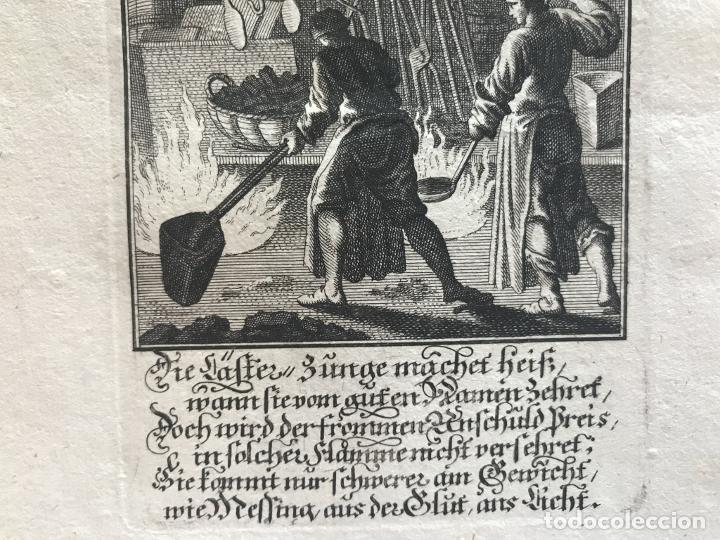 Die Läster-Zunge machet heiß/
wann sie vom guten Namen zehret,
Doch wird der frommen Unschuld Preis,
in solcher Flamme nicht versehret;
Sie kommt nur schwerer am Gewicht/
wie Messing, aus der Glut, ans Licht.
todocoleccion.net